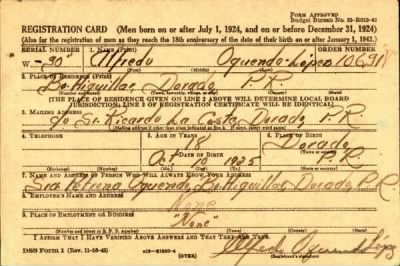 FORM APPROVED
REGISTRATION CARD (Men born on or after July 1, 1924, and on or before December 31, 1924)
(Also for the registration of men as they reach the 18th anniversary of the date of their birth on or after January 1, 1943.)
SERIAL NUMBER 1. NAME (Print) ORDER NUMBER
W-30 Alfredo Oquendo-López
(First) (Middle) (Last)
2. PLACE OF RESIDENCE (Print)
Bo. Higuillar Dorado P.R.
[THE PLACE OF RESIDENCE GIVEN ON LINE 2 ABOVE WILL DETERMINE LOCAL BOARD
JURISDICTION; LINE 2 OF REGISTRATION CERTIFICATE WILL BE IDENTICAL]
3. MAILING ADDRESS
Sr. Ricardo La Costa, Dorado, P.R.
4. TELEPHONE 5. AGE IN YEARS 6. PLACE OF BIRTH
18 Dorado
DATE OF BIRTH
10 1925 P.R.
7. NAME AND ADDRESS OF PERSON WHO WILL ALWAYS KNOW YOUR ADDRESS
Petrona Oquendo, Bo. Higuillar Dorado P.R.
8. EMPLOYER'S NAME AND ADDRESS
None
9. PLACE OF EMPLOYMENT OR BUSINESS
"None"
I AFFIRM THAT I HAVE VERIFIED ABOVE ANSWERS AND THAT THEY ARE TRUE.
DSS Form 1 (OVER) Alfredo Oquendo López